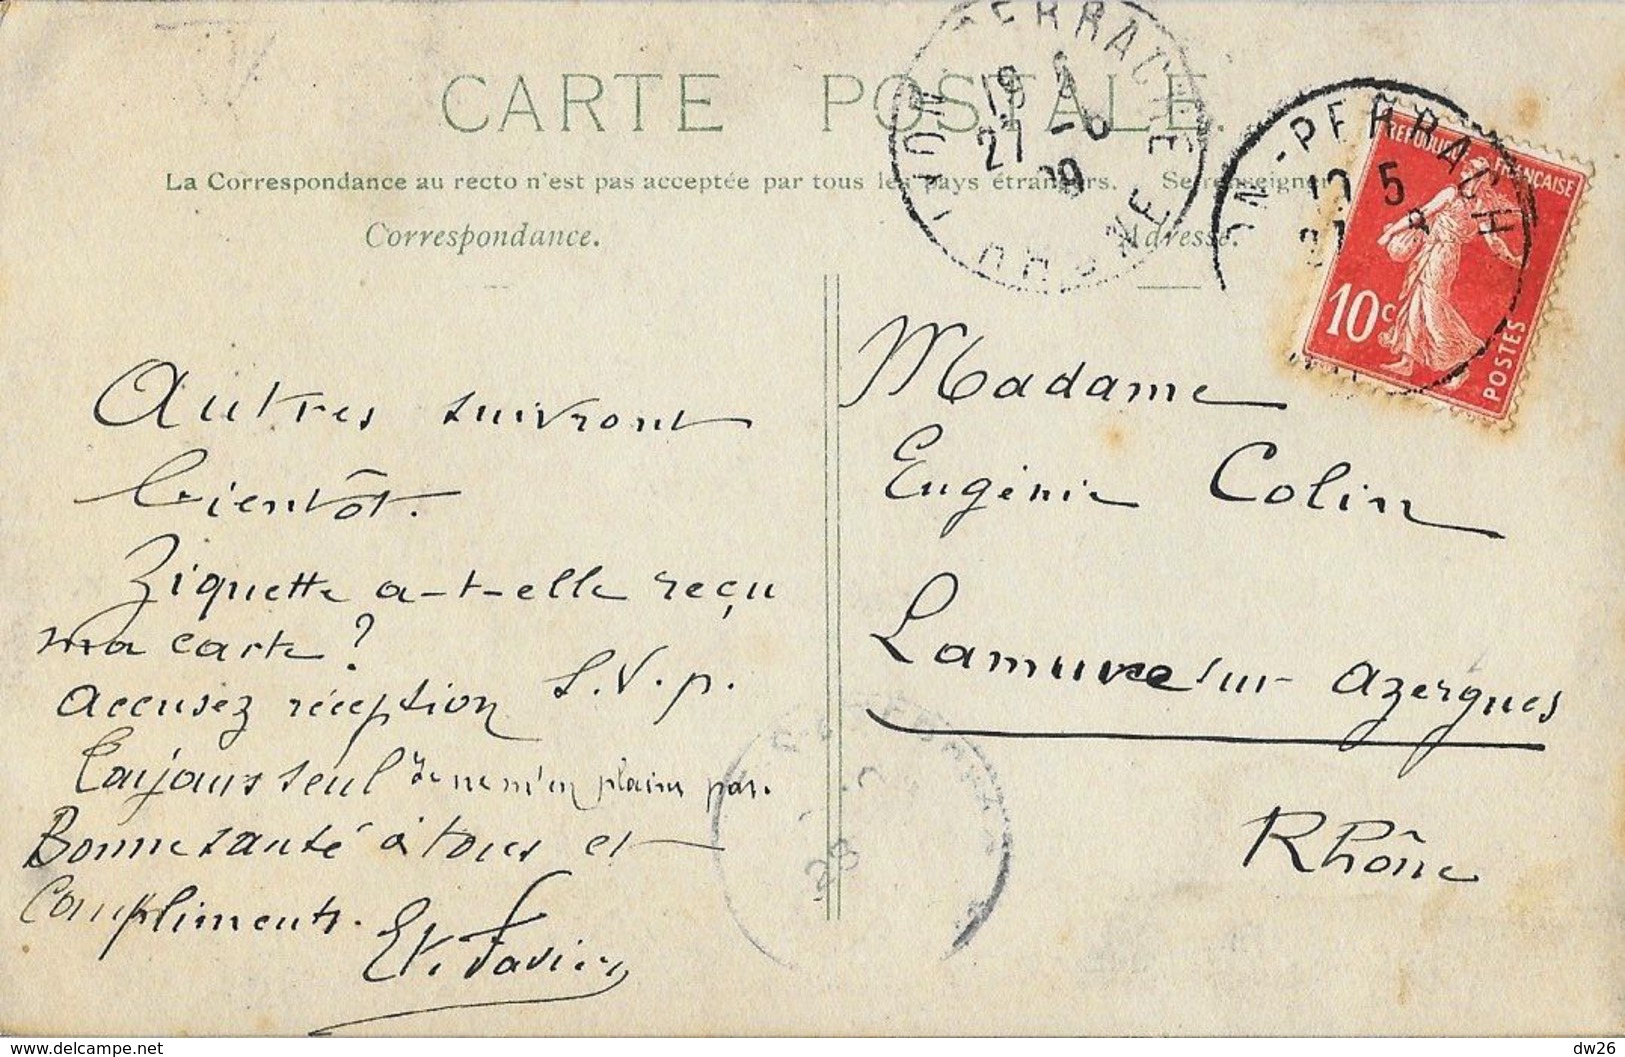 CARTE POSTALE.
La Correspondance au recto n'est pas acceptée par tous les pays étrangers. Se renseigner
Correspondance.
Adresse.
LYON PERRACHE
RHONE
19
27 -6
09
ON-PERRACH
5
REPUBLIQUE FRANÇAISE
10c
POSTES
Autres suivront
bientôt.
Ziquette a-t-elle reçu
ma carte?
Accusez réception S.V.p.
Toujours seul Je ne m'en plains pas.
Bonne santé à tous et
Compliments.
Et. Favier
Madame
Eugénie Colin
Lamure sur Azergues
Rhône
23
delcampe.net
dw26